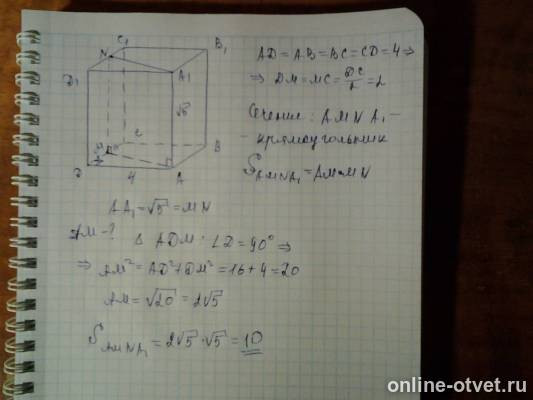 C₁
B₁
N
D₁
A₁
√5
C
M
B
D
4
A
AD = AB = BC = CD = 4 ⇒
⇒ DM = MC = DC/2 = 2
Сечение: AMNA₁ –
- прямоугольник
S AMNA₁ = AM·MN
AA₁ = √5 = MN
AM - ? Δ ADM: ∠D = 90° ⇒
⇒ AM² = AD² + DM² = 16 + 4 = 20
AM = √20 = 2√5
S AMNA₁ = 2√5 · √5 = 10
online-otvet.ru